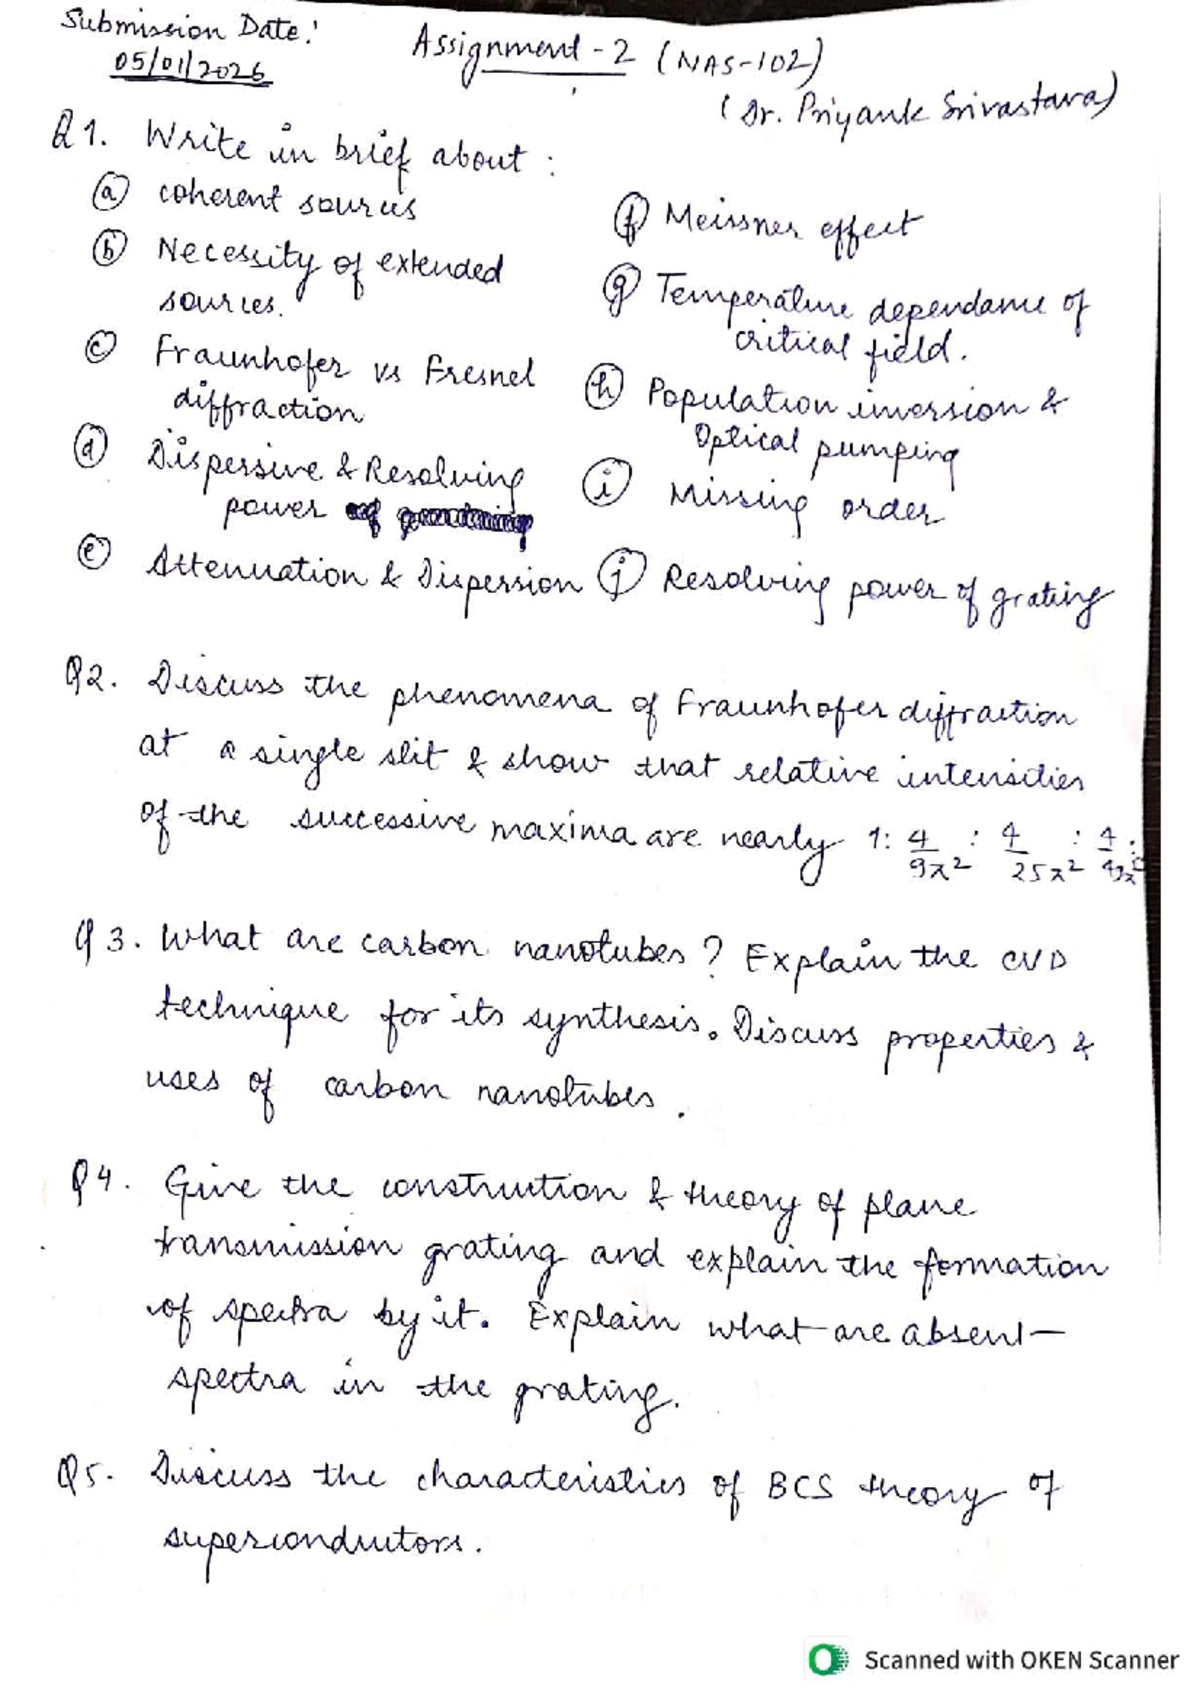 Submission Date:
05/01/2026
Assignment-2 (NAS-102)
(Dr. Priyank Srivastava)
Q1. Write in brief about :
(a) coherent sources
(b) Necessity of extended
sources.
(c) Fraunhofer vs Fresnel
diffraction
(d) Dispersive & Resolving
power
(e) Attenuation & Dispersion
(f) Meissner effect
(g) Temperature dependance of
critical field.
(h) Population inversion &
Optical pumping
(i) Missing order
(j) Resolving power of grating
Q2. Discuss the phenomena of Fraunhofer diffraction
at a single slit & show that relative intensities
of the successive maxima are nearly 1: 4/9π² : 4/25π² : 4/49π² :
Q3. What are carbon nanotubes? Explain the CVD
technique for its synthesis. Discuss properties &
uses of carbon nanotubes.
Q4. Give the construction & theory of plane
transmission grating and explain the formation
of spectra by it. Explain what are absent
spectra in the grating.
Q5. Discuss the characteristics of BCS theory of
superconductors.
Scanned with OKEN Scanner